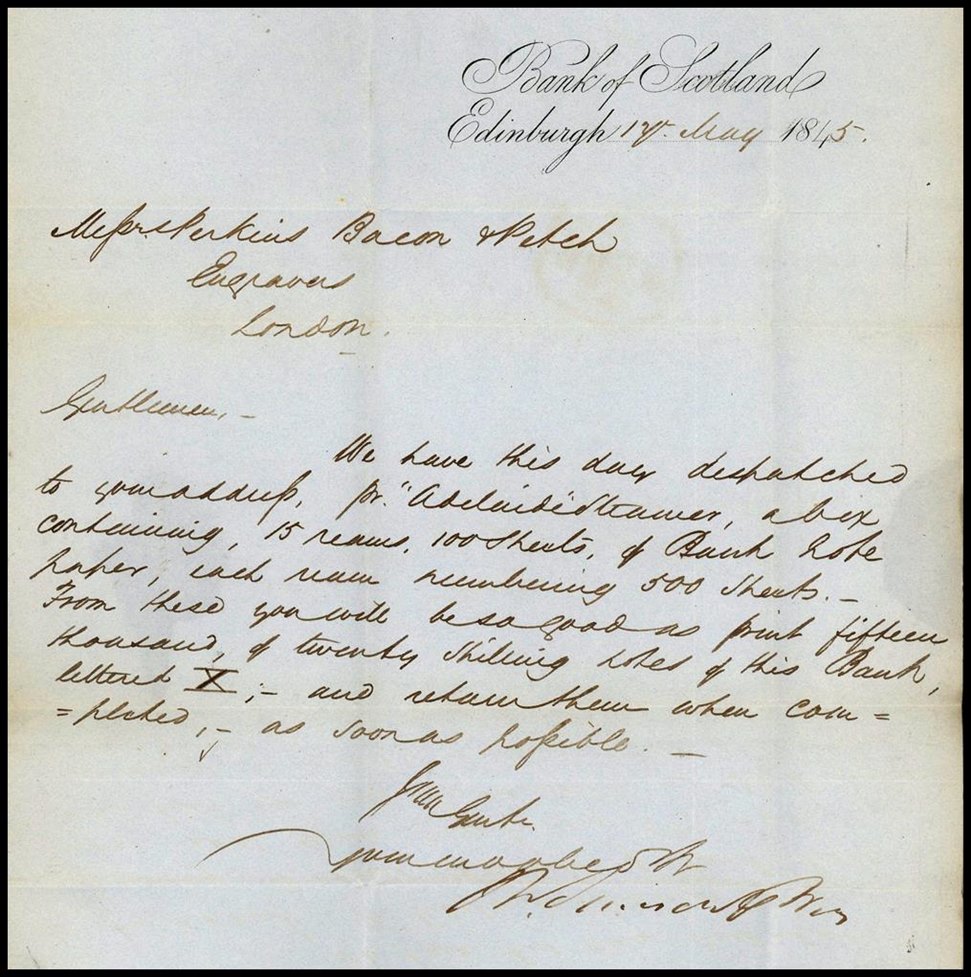 Bank of Scotland
Edinburgh 17th May 1845.
Messrs. Perkins Bacon & Petch
Engravers
London.
Gentlemen, —
We have this day despatched
to your address, pr. "Adelaide" Steamer, a box
containing, 15 reams, 100 Sheets, of Bank Note
paper, each ream numbering 500 Sheets. —
From these you will be so good as print fifteen
thousand, of twenty shilling notes of this Bank,
lettered X ; — and return them when com=
=pleted, — as soon as possible. —
I am Gentn.
your most obedt